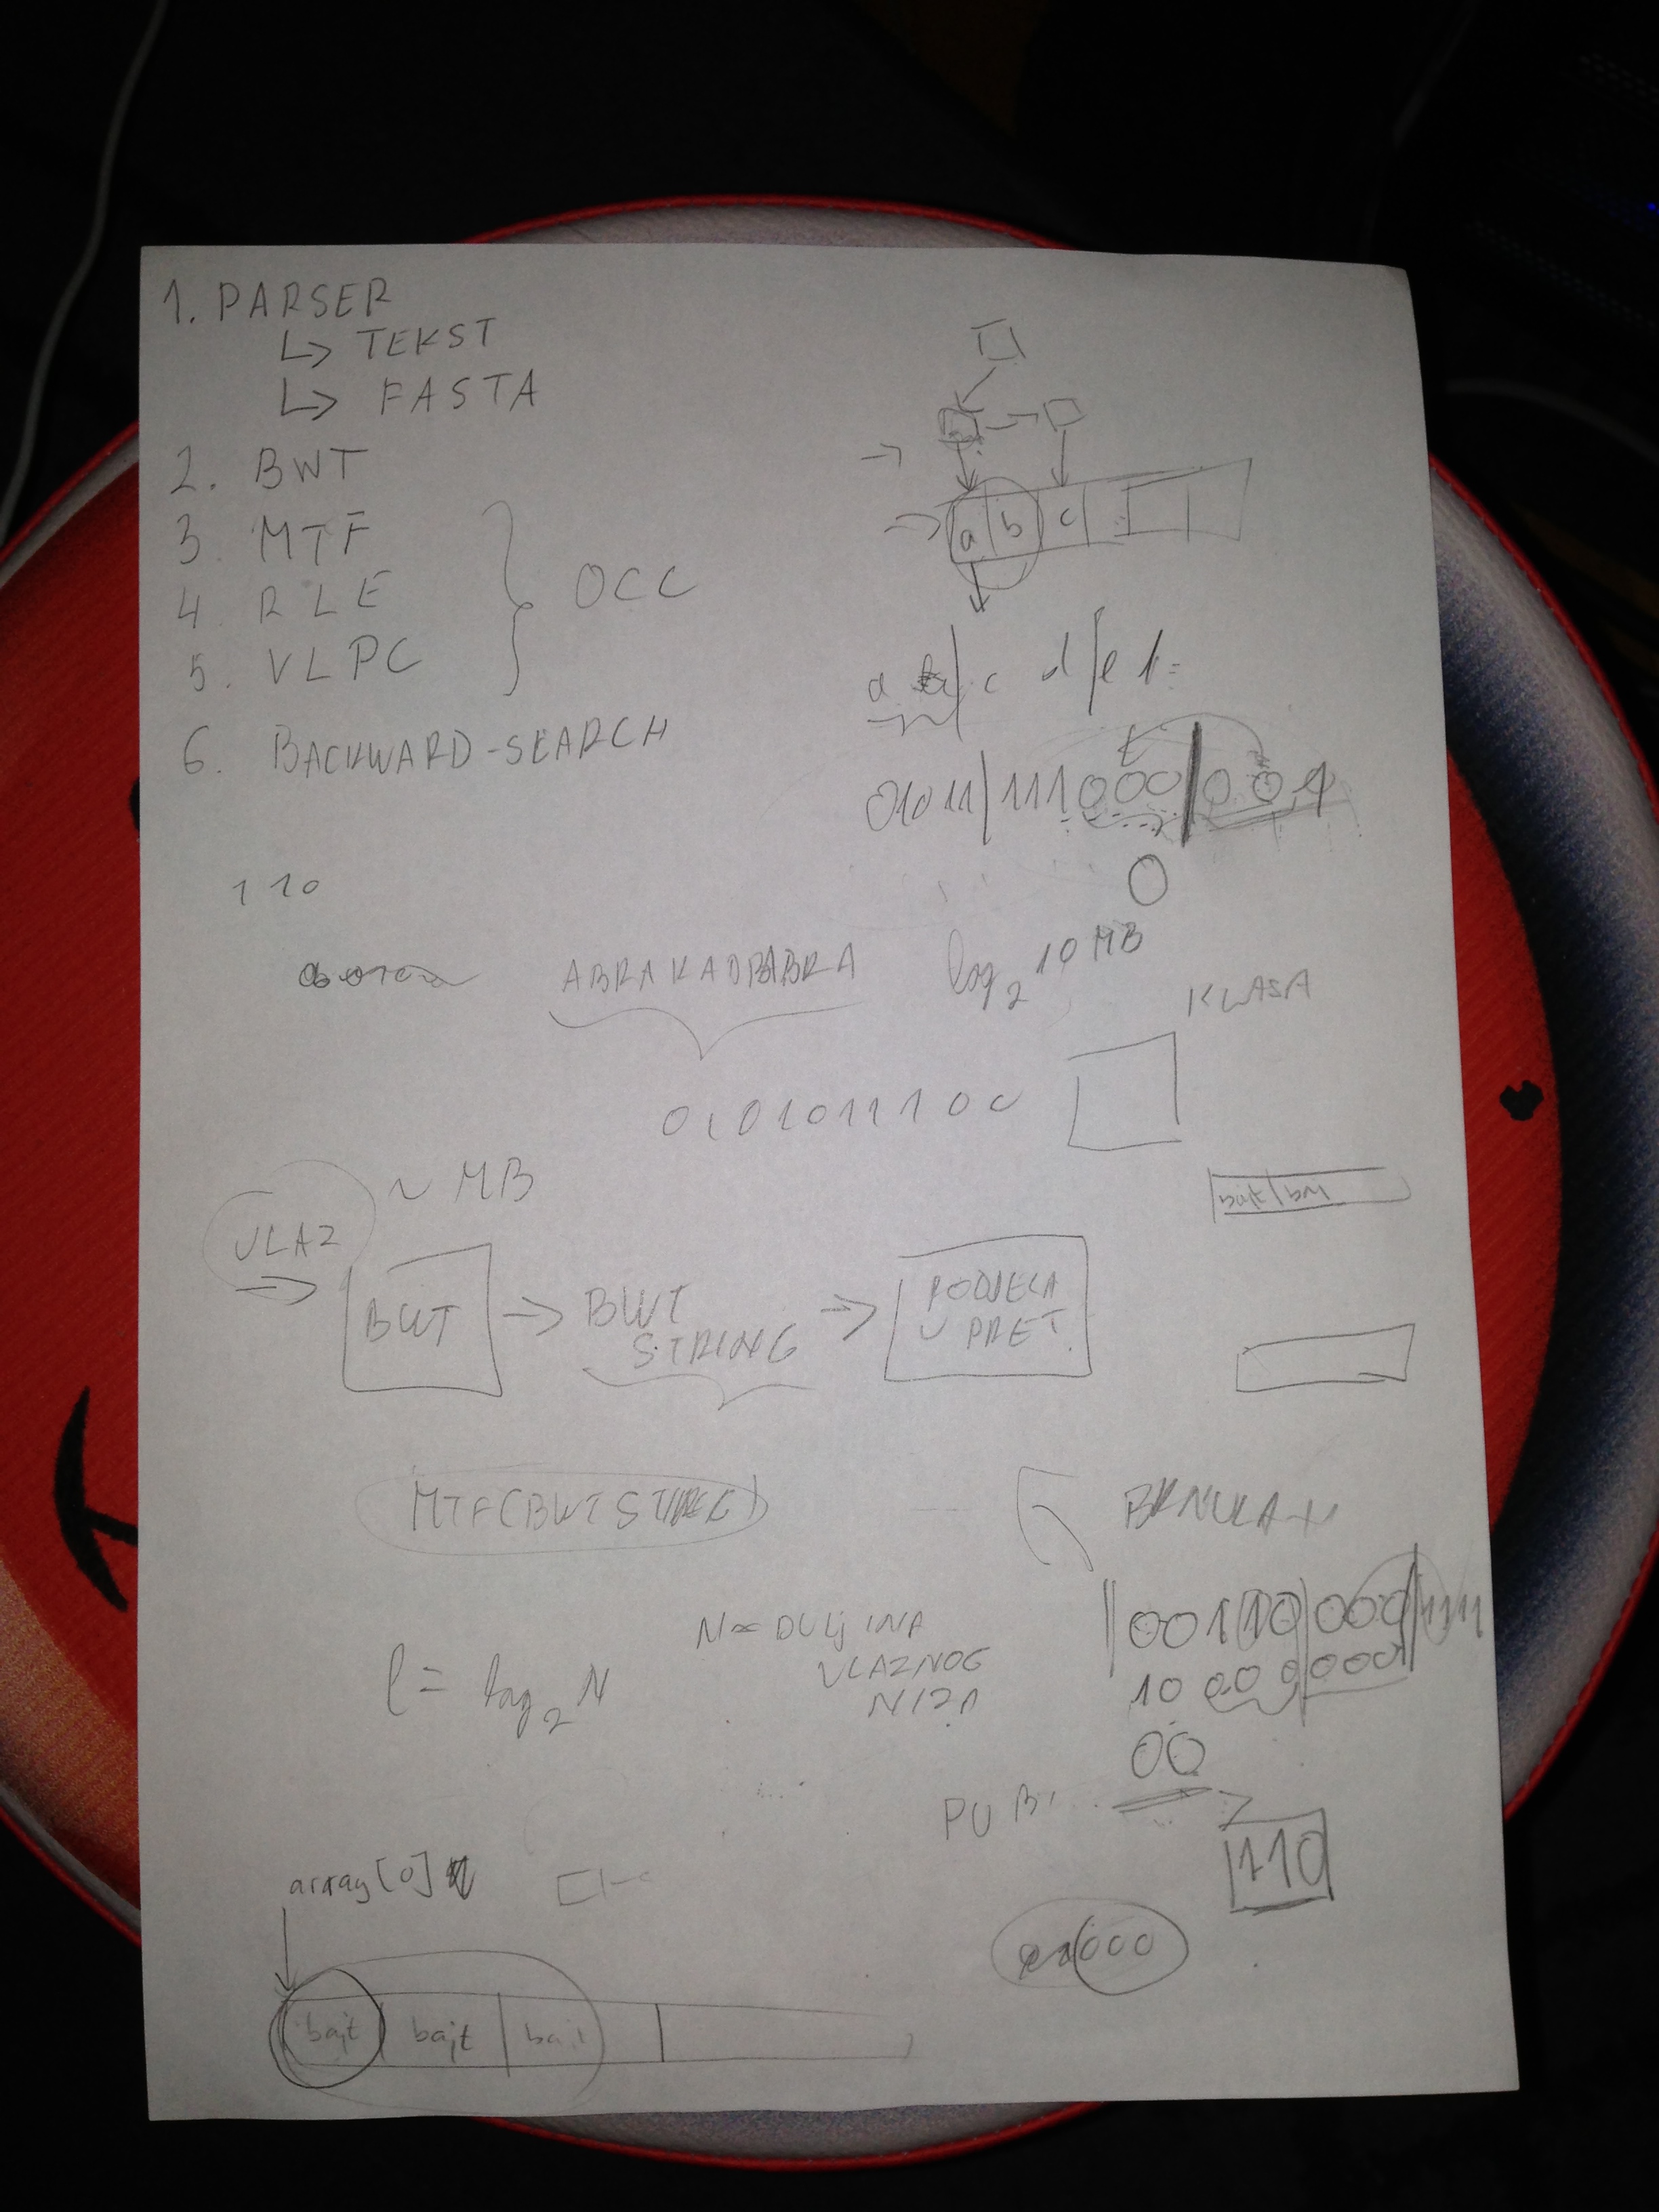 1. PARSER
↳ TEKST
↳ FASTA
2. BWT
3. MTF
4. RLE
5. VLPC
OCC
6. BACKWARD-SEARCH
a b c
01011|111000|001
0
110
ABRAKADABRA
log₂ 10 MB
KLASA
0101011100
~ MB
ULAZ
bajt
BWT → BWT STRING → PODJELA U PRET.
MTF(BWT STRING)
l = log₂ N
N = DULJINA
ULAZNOG
NIZA
00110|000|1111
10 000|000
00
110
000
array[0]
bajt bajt bajt